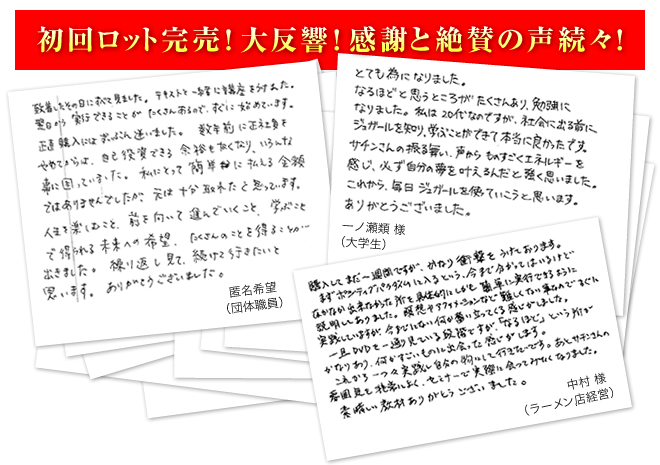 初回ロット完売！大反響！感謝と絶賛の声続々！
到着したその日にすぐ見ました。テキストと一緒に講座をうけた。
翌日から実行できることがたくさんあるので、すぐに始めています。
正直購入にはずいぶん迷いました。数年前に正社員を
やめてからは、自己投資できる余裕もなくなり、いろんな
事に困っていました。私にとって簡単に払える金額
ではありませんでしたが、元は十分取れたと思っています。
人生を楽しむこと、前を向いて進んでいくこと、学ぶこと
で得られる未来への希望、たくさんのことを得ることが
出来ました。繰り返し見て、続けて行きたいと
思います。ありがとうございました。
匿名希望
（団体職員）
とても為になりました。
なるほどと思うところがたくさんあり、勉強に
なりました。私は20代なのですが、社会に出る前に
ジョガールを知り、学ぶことができて本当に良かったです。
サチンさんの振る舞い、声からものすごくエネルギーを
感じ、必ず自分の夢を叶えるんだと強く思いました。
これから、毎日ジョガールを使っていこうと思います。
ありがとうございました。
一ノ瀬類 様
（大学生）
購入してまだ一週間ですが、かなり衝撃をうけております。
まずポジティブパラダイムに入るという、今まで分かってはいるけど
なかなか出来なかった所を具体的にしかも簡単に実行できるように
説明してありました。瞑想やアファメーションなど難しくない事なのですぐに
実践していますが、今までにない何かが奮い立ってくる感じがしました。
一旦DVDを一通り見ている段階ですが、「なるほど」という所が
かなりあり、何かすごいものに出会った感じがします。
これから一つ一つ実践し自分の物にして行きたいです。あとサチンさんの
雰囲気も非常に良く、セミナーで実際に会ってみたくなりました。
素晴しい教材ありがとうございました。
中村 様
（ラーメン店経営）